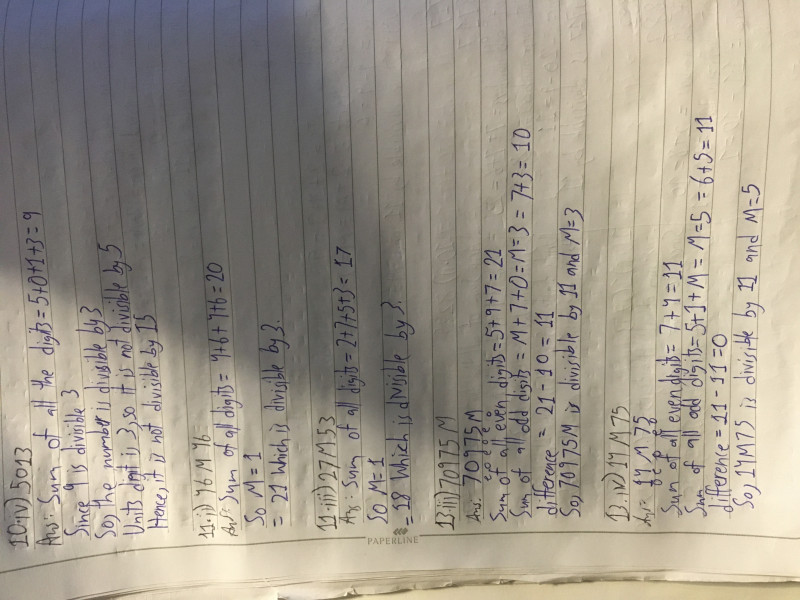 10.iv) 5013
Ans: Sum of all the digits = 5+0+1+3 = 9
Since 9 is divisible 3
So, the number is divisible by 3
Units digit is 3, so it is not divisible by 5
Hence, it is not divisible by 15
11.i) 46 M 46
Ans: Sum of all digits = 4+6+4+6 = 20
So M = 1
= 21 which is divisible by 3.
11.iii) 27 M 53
Ans: Sum of all digits = 2+7+5+3 = 17
So M = 1
= 18 Which is divisible by 3.
13.iii) 70975 M
Ans: 70975 M
e o e o e o
Sum of all even digits = 5+9+7 = 21
Sum of all odd digits = M+7+0 = M=3 = 7+3 = 10
difference = 21 - 10 = 11
So, 70975M is divisible by 11 and M=3
13.iv) 17 M 75
Ans = 17 M 75
Sum of all even digits = 7+4 = 11
Sum of all odd digits = 5+1+M = M=5 = 6+5 = 11
difference = 11 - 11 = 0
So, 14M75 is divisible by 11 and M=5
PAPERLINE